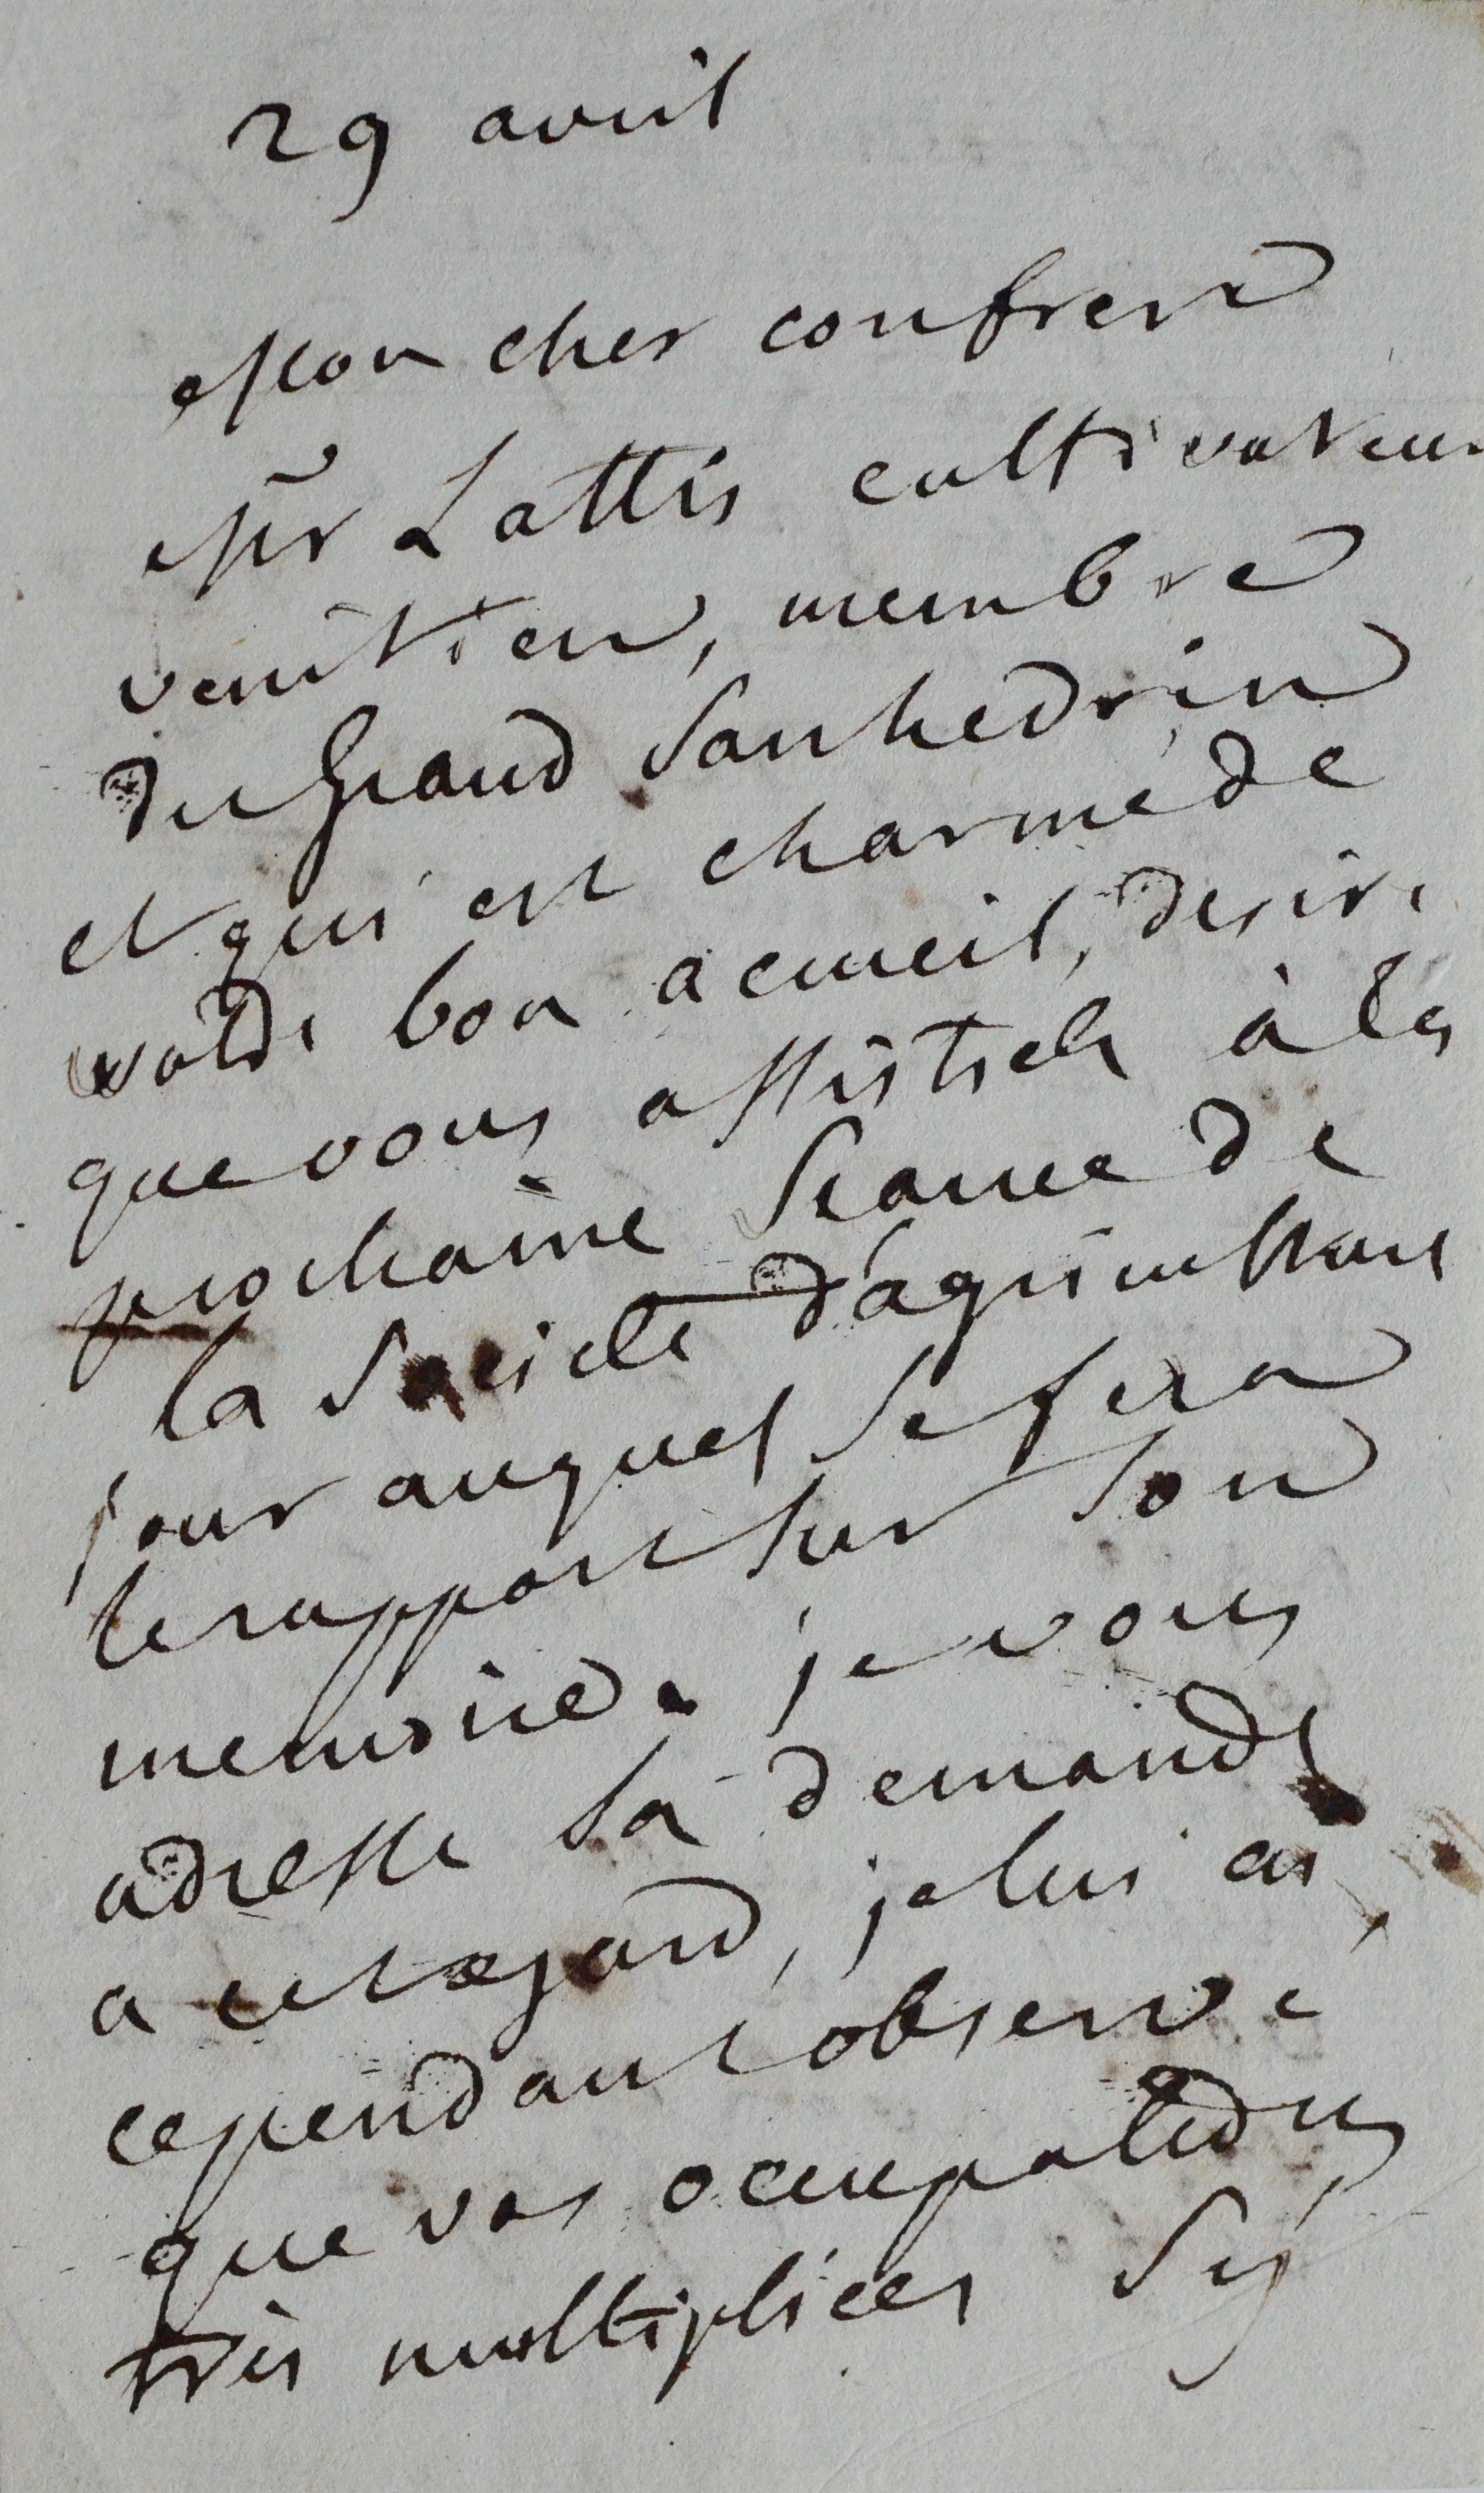 29 avril
Mon cher confrere
Mr Lattis cultivateur
venitien, membre
du Grand Sanhedrin
et qui est charmé de
votre bon acueil, desire
que vous assistiez à la
prochaine Seance de
la Societé d'agriculture
jour auquel se fera
le rapport sur son
memoire. je vous
adresse sa demande
a cet egard, je lui ai
cependant observé
que vos occupations
très multipliées s'y